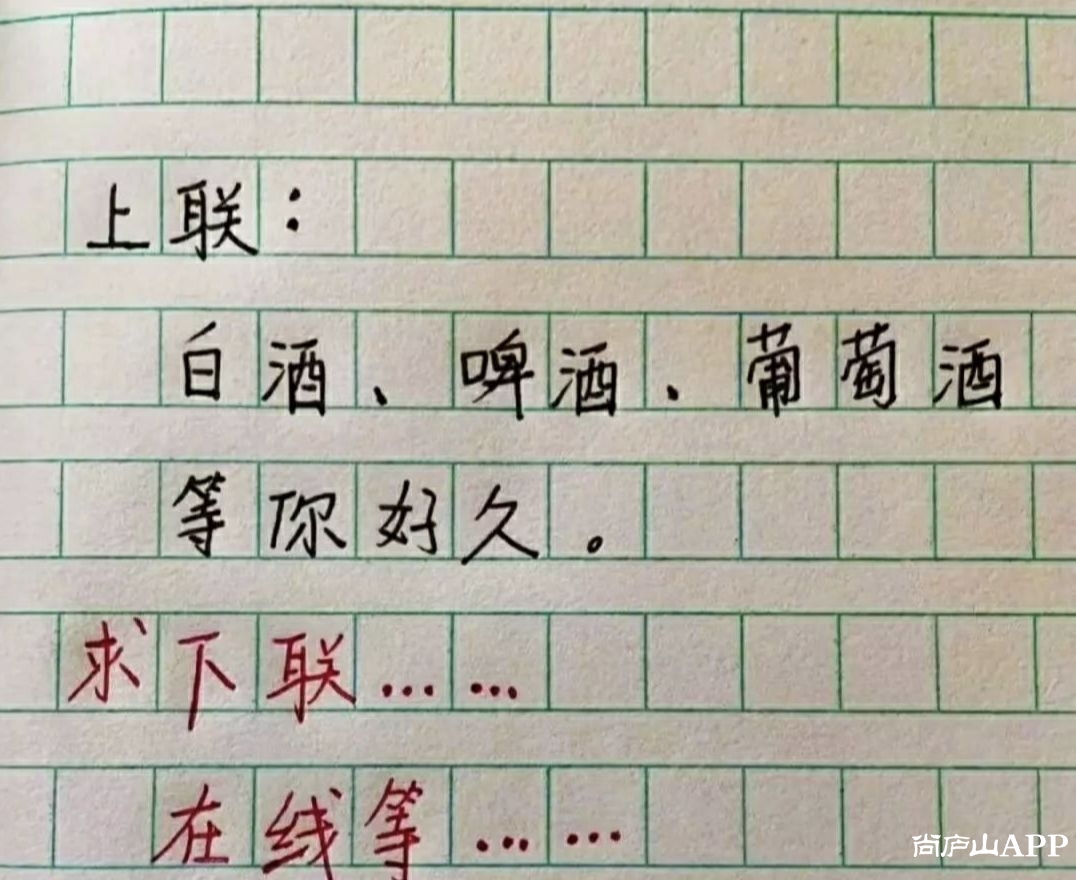 上联：
白酒、啤酒、葡萄酒
等你好久。
求下联……
在线等……
尚庐山APP